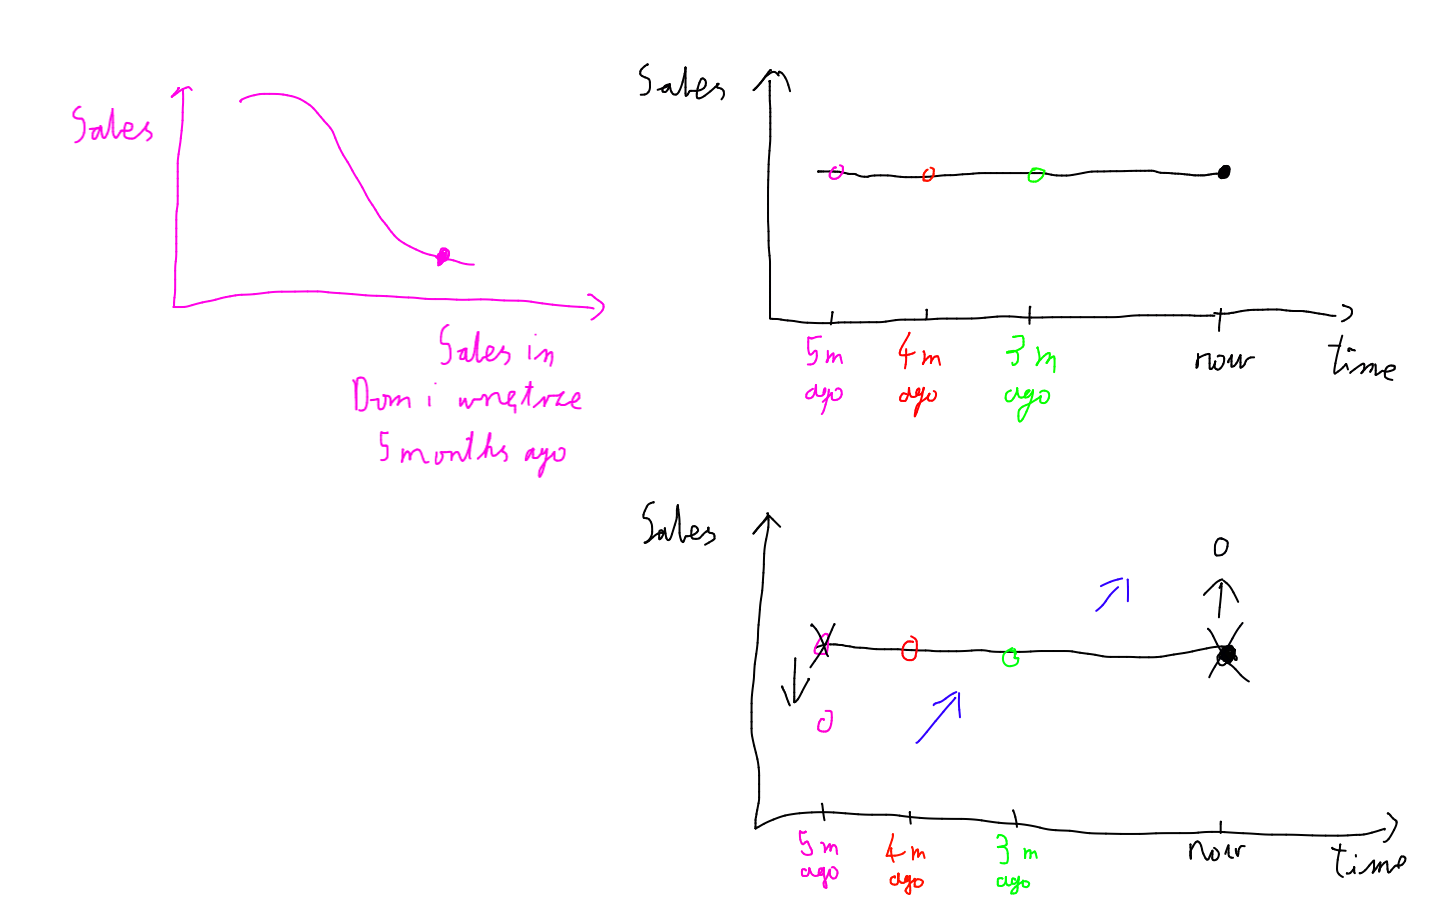 Sales
Sales in
Dom i wnętrze
5 months ago
Sales
5m ago
4m ago
3m ago
now
time
Sales
5m ago
4m ago
3m ago
now
time